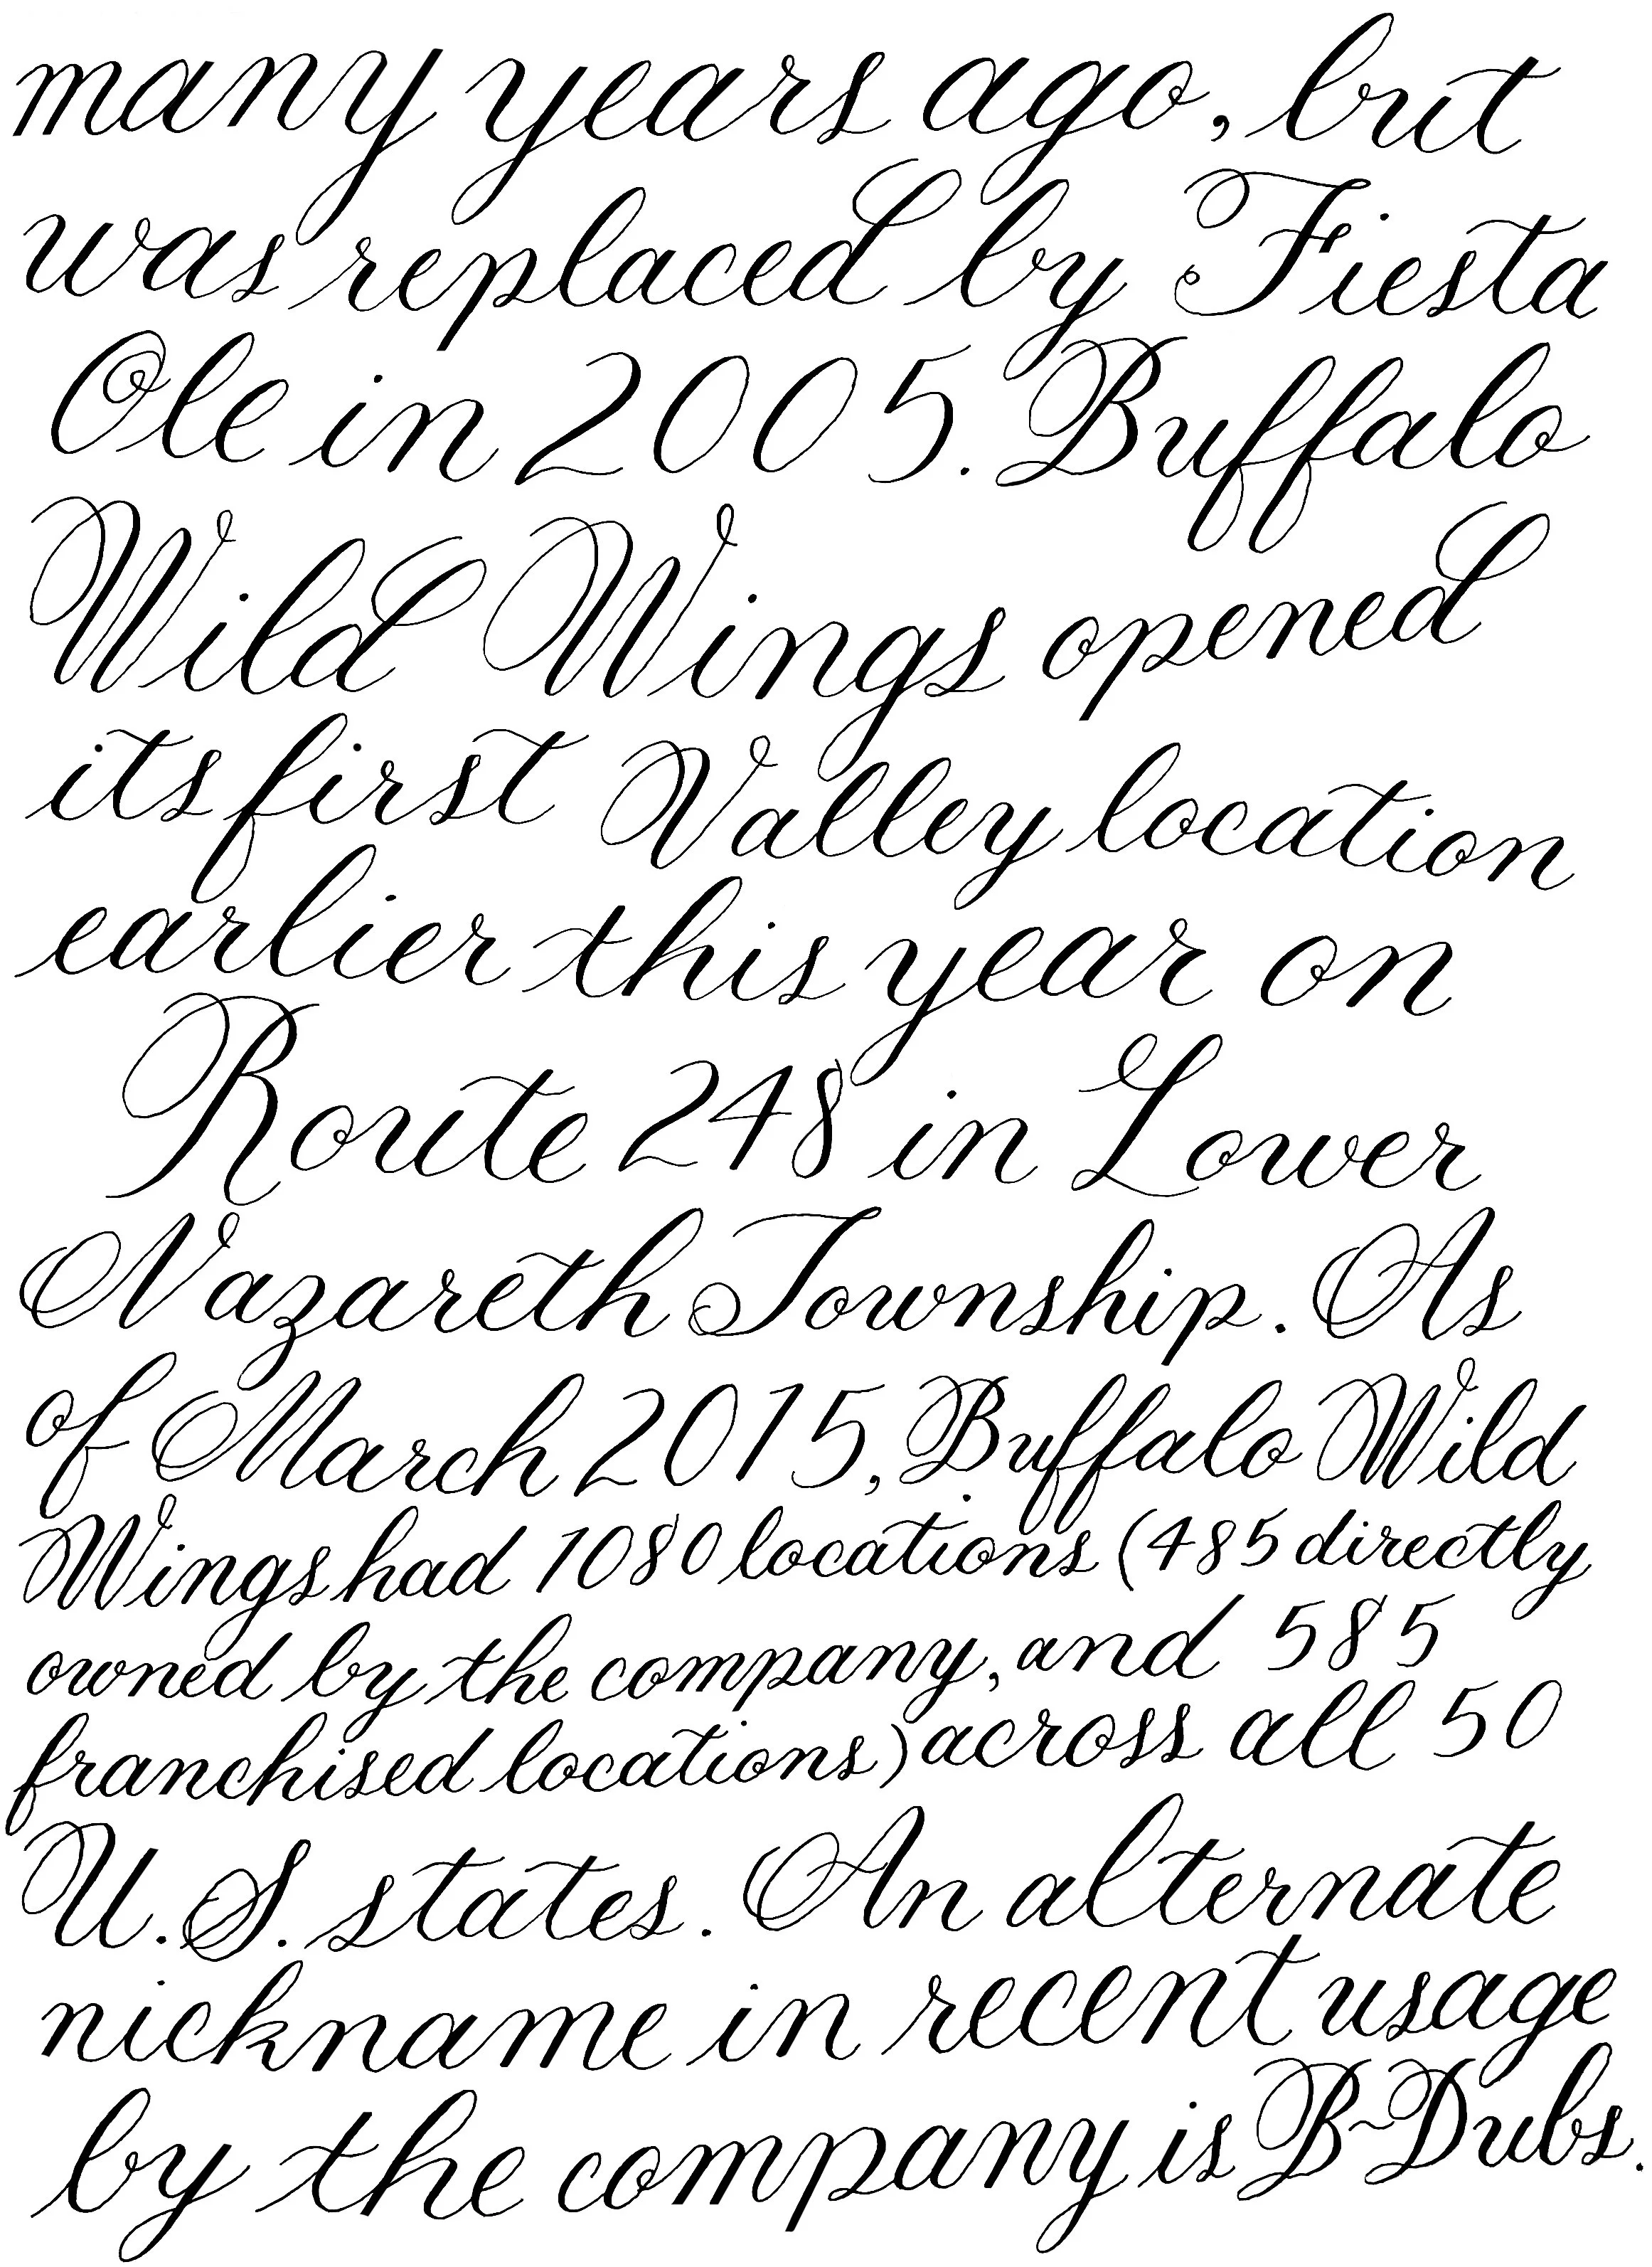 many years ago, but
was replaced by Fiesta
Ole in 2005. Buffalo
Wild Wings opened
its first Valley location
earlier this year on
Route 248 in Lower
Nazareth Township. As
of March 2015, Buffalo Wild
Wings had 1080 locations (485 directly
owned by the company, and 585
franchised locations) across all 50
U.S. states. An alternate
nickname in recent usage
by the company is B-Dubs.